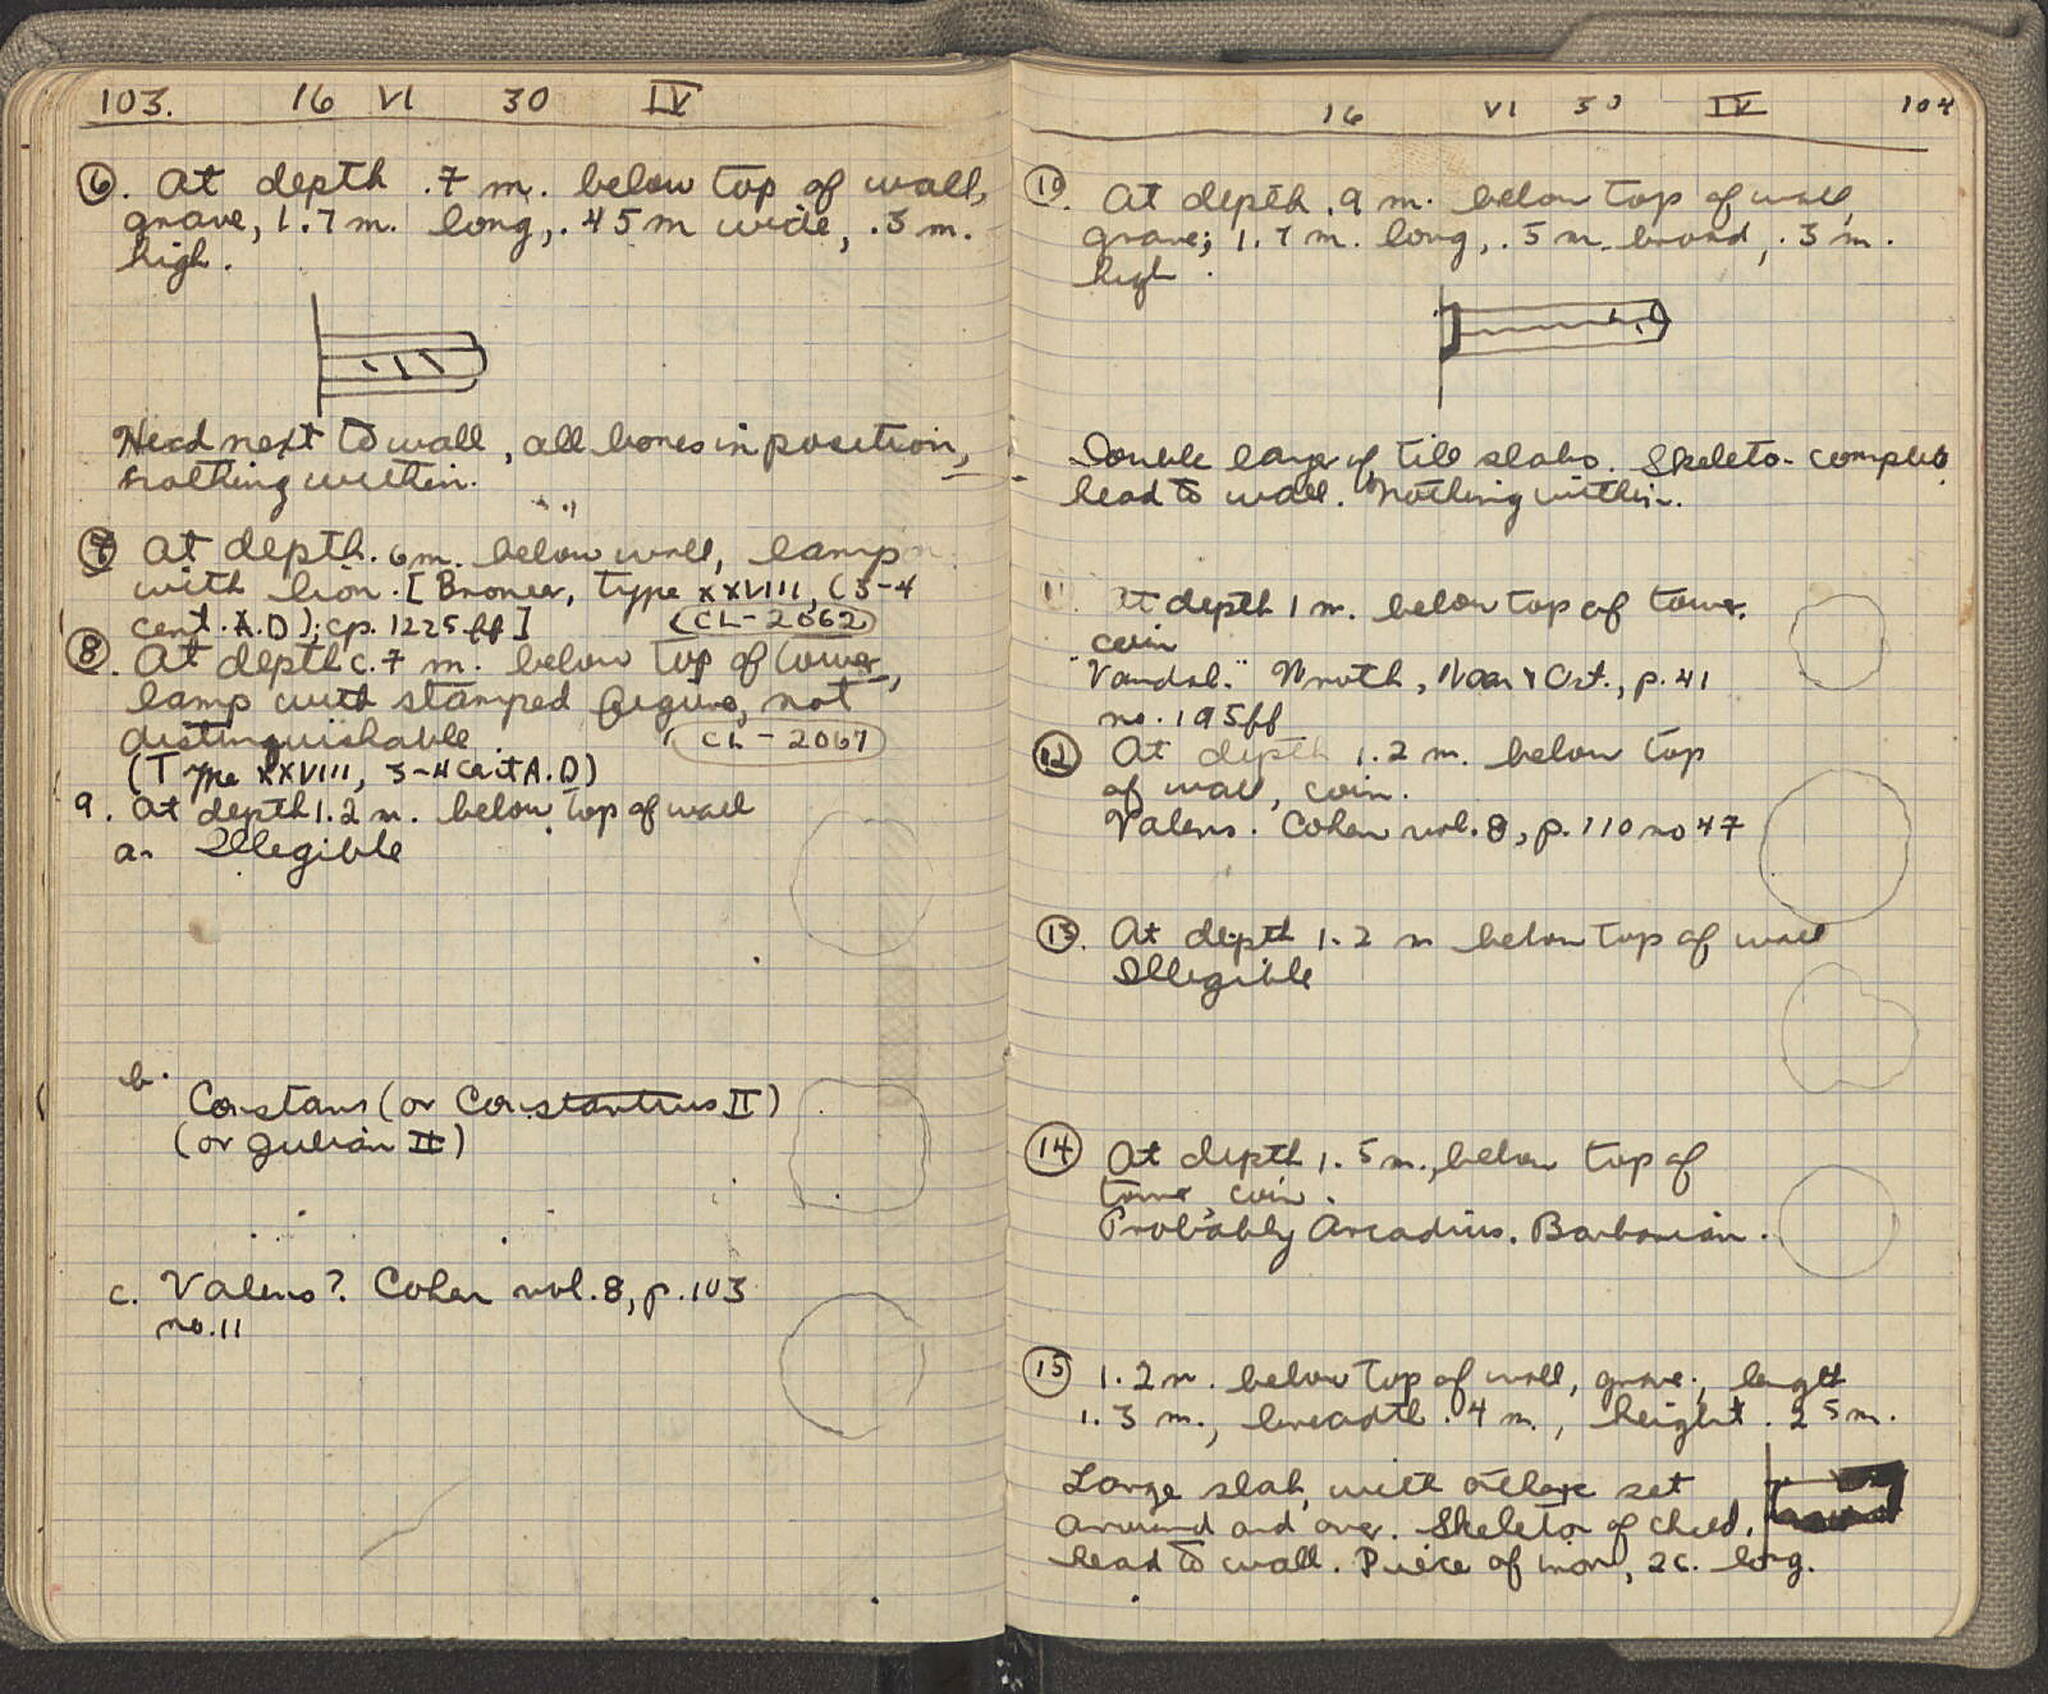 103. 16 VI 30 IV
6. At depth .7 m. below top of wall,
grave, 1.7 m. long, .45 m wide, .3 m.
high.
Head next to wall, all bones in position,
nothing within.
7 At depth .6 m. below wall, lamp
with lion. [Broneer, Type XXVIII, (3-4
cent. A.D); cp. 1225 ff]
CL-2062
8. At depth c. 7 m. below top of tower,
lamp with stamped figure, not
distinguishable.
CL-2067
(Type XXVIII, 3-4 cent A.D)
9. At depth 1.2 m. below top of wall
a. Illegible
b.
Constans (or Constantius II)
(or Julian II)
c. Valens?. Cohen vol. 8, p. 103
no. 11
16 VI 30 IV 104
10. At depth .9 m. below top of wall,
grave; 1.7 m. long, .5 m. broad, .3 m.
high.
Double layer of tile slabs. Skeleton complete
head to wall. Nothing within.
11. At depth 1 m. below top of tower.
coin
"Vandal." Wroth, p. 41
no. 195 ff
12. At depth 1.2 m. below top
of wall, coin.
Valens. Cohen vol. 8, p. 110 no 47
13. At depth 1.2 m below top of wall
Illegible
14 At depth 1.5 m., below top of
tower coin.
Probably Arcadius. Barbarian.
15 1.2 m. below top of wall, grave; length
1.3 m., breadth .4 m., height .25 m.
Large slab, with others set
around and over. Skeleton of child,
head to wall. Piece of iron, 2c. long.